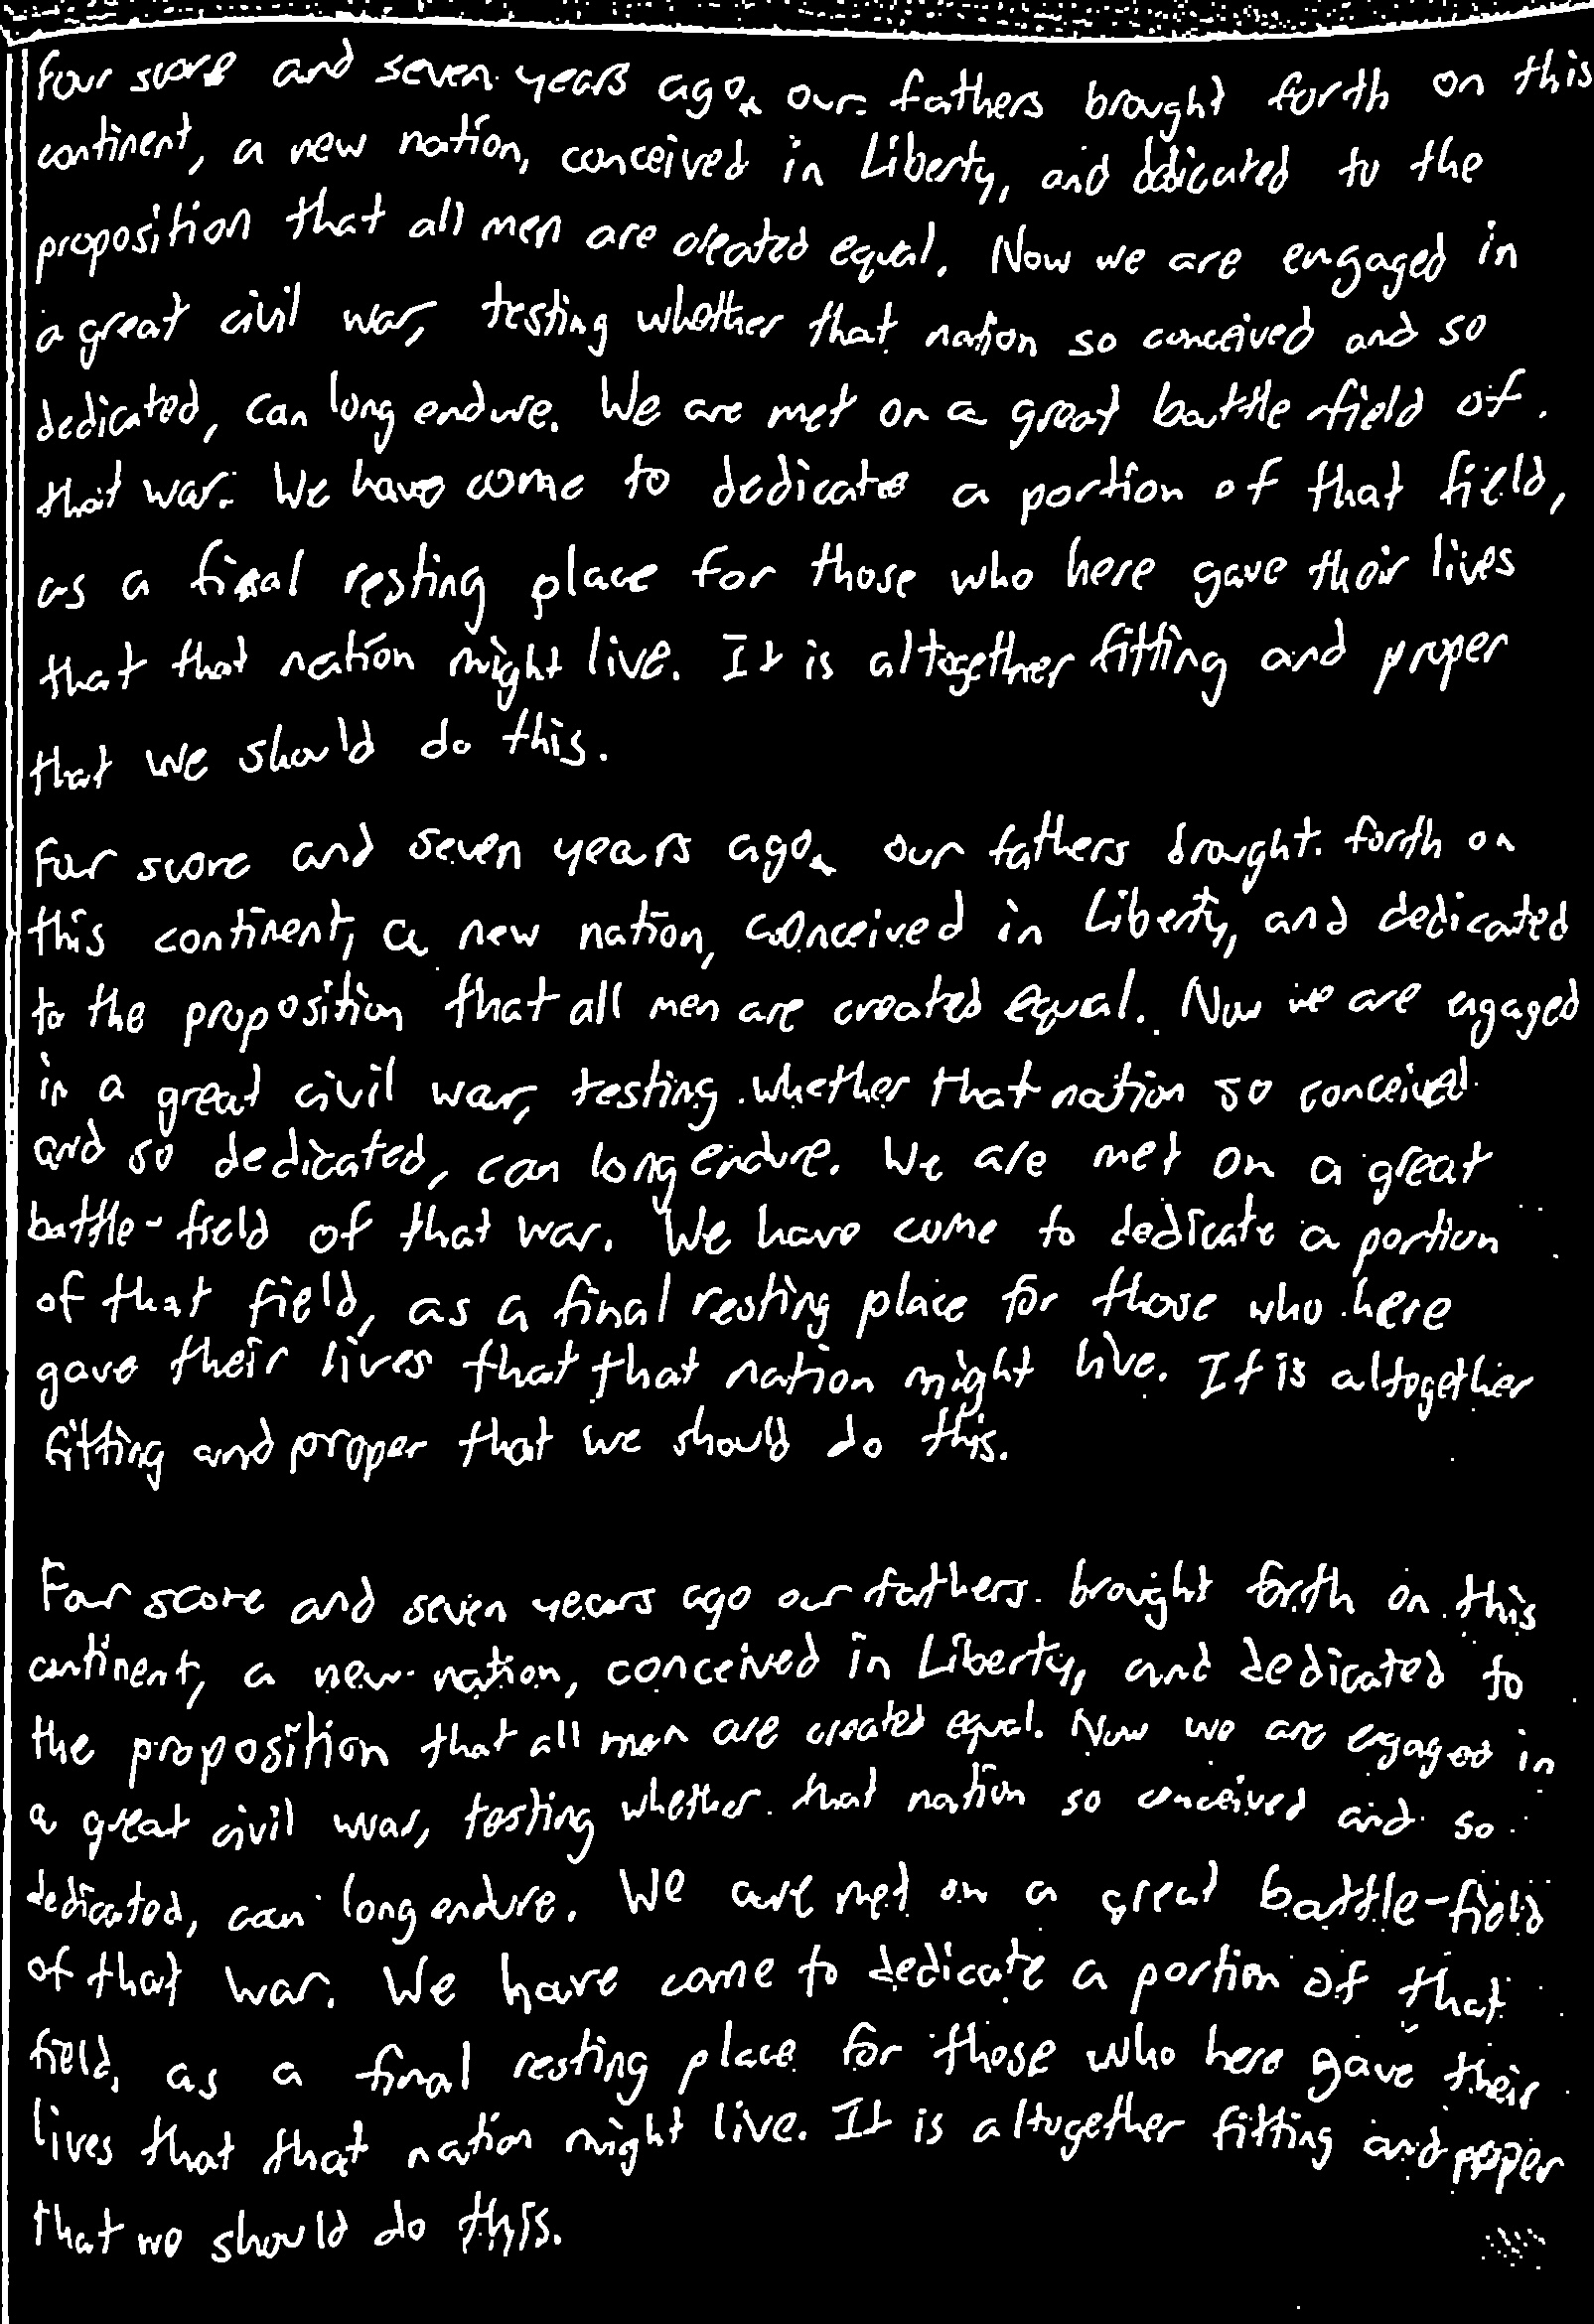 Four score and seven years ago our fathers brought forth on this
continent, a new nation, conceived in Liberty, and dedicated to the
proposition that all men are created equal. Now we are engaged in
a great civil war, testing whether that nation so conceived and so
dedicated, can long endure. We are met on a great battle-field of
that war. We have come to dedicate a portion of that field,
as a final resting place for those who here gave their lives
that that nation might live. It is altogether fitting and proper
that we should do this.
Four score and seven years ago our fathers brought forth on
this continent, a new nation, conceived in Liberty, and dedicated
to the proposition that all men are created equal. Now we are engaged
in a great civil war, testing whether that nation so conceived
and so dedicated, can long endure. We are met on a great
battle-field of that war. We have come to dedicate a portion
of that field, as a final resting place for those who here
gave their lives that that nation might live. It is altogether
fitting and proper that we should do this.
Four score and seven years ago our fathers brought forth on this
continent, a new nation, conceived in Liberty, and dedicated to
the proposition that all men are created equal. Now we are engaged in
a great civil war, testing whether that nation so conceived and so
dedicated, can long endure. We are met on a great battle-field
of that war. We have come to dedicate a portion of that
field, as a final resting place for those who here gave their
lives that that nation might live. It is altogether fitting and proper
that we should do this.